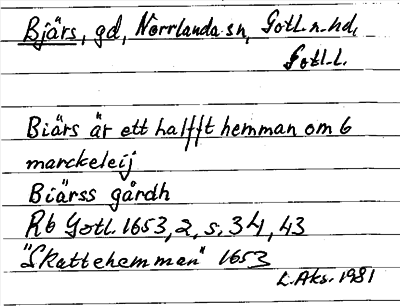 Bjärs, gd, Norrlanda sn, Gotl. n. hd,
Gotl. l.
Biärs är ett halfft hemman om 6
marckeleij
Biärss gårdh
Rb Gotl. 1653, 2, s. 34, 43
"Skattehemman" 1653
L. Aks. 1981